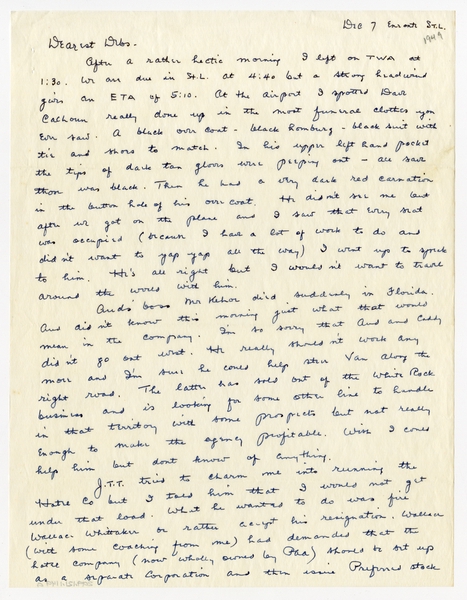 Dec 7 Enroute St.L.
1949
Dearest Debs.
After a rather hectic morning I left on TWA at
1:30. We are due in St.L. at 4:40 but a strong headwind
gives an ETA of 5:10. At the airport I spotted Dave
Calhoun really done up in the most funeral clothes you
Ever saw. A black over coat - black homburg - black suit with
tie and shoes to match. In his upper left hand pocket
the tips of dark tan gloves were peeping out - all save
those was black. Then he had a very dark red carnation
in the button hole of his over coat. He didn't see me but
after we got on the plane and I saw that every seat
was occupied (because I have a lot of work to do and
didn't want to yap-yap all the way) I went up to speak
to him. He's all right but I wouldn't want to travel
around the world with him.
Auds' boss Mr Kehor died suddenly in Florida.
Aud didn't know this morning just what that would
mean in the company. I'm so sorry that Aud and Caddy
didn't go out west. He really shouldn't work any
more and I'm sure he could help steer Van along the
right road. The latter has sold out of the White Rock
business and is looking for some other line to handle
in that territory with some prospects but not really
Enough to make the agency profitable. Wish I could
help him but dont know of anything.
J.T.T. tried to charm me into running the
Hotel Co but I told him that I would not get
under that load. What he wanted to do was fire
Wallace Whittaker or rather accept his resignation. Wallace
(with some coaching from me) had demanded that the
hotel company (now wholly owned by Paa) should be set up
as a separate Corporation and then issue Preferred stock